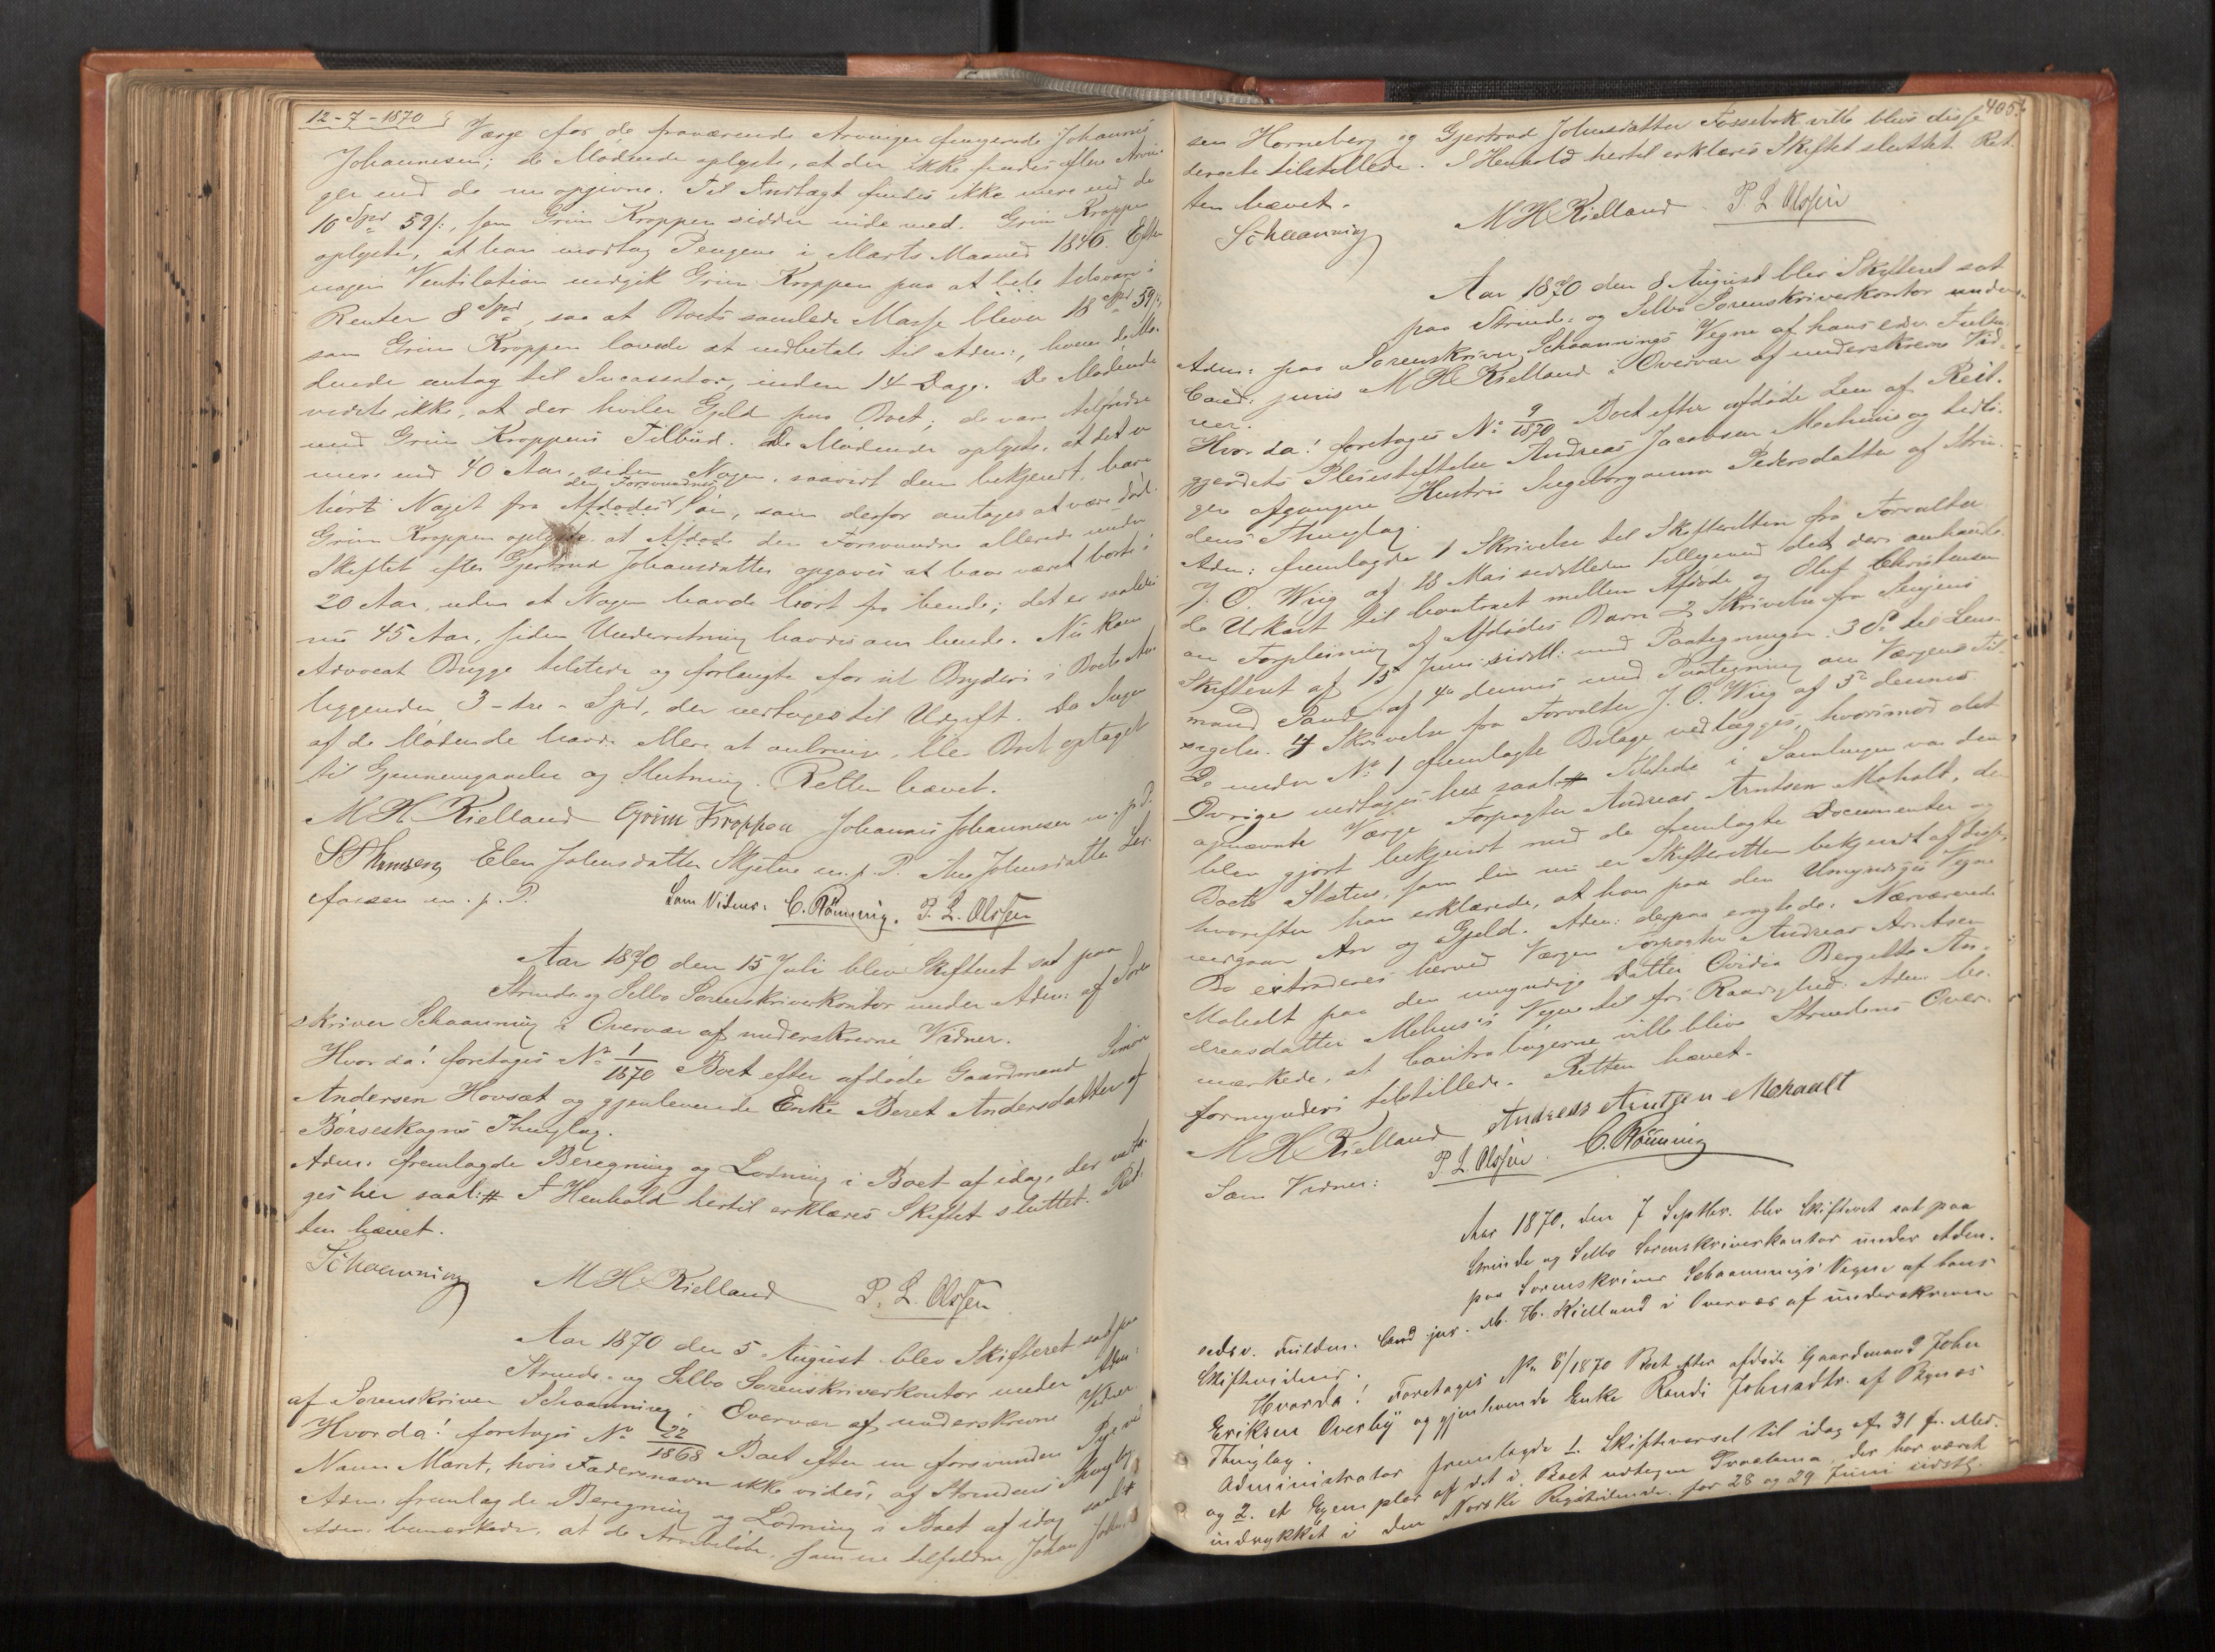 12-7-1870
Værge for de fraværende Arvinger fungerede Johannes
Johannesen; de Mødende oplyste, at der ikke findes flere Arvin-
ger end de nu opgivne. Til Indtægt findes ikke mere end de
10 Spd 59 s:, som Grim Kroppen sidder inde med. Grim Kroppen
oplyste, at han modtog Pengene i Marts Maaned 1846. Efter
nogen Ventilation indgik Grim Kroppen paa at tilsvare i
Renter 8 Spd, saa at Boets samlede Masse bliver 18 Spd 59 s:
som Grim Kroppen lovede at indbetale til Adm:, hvem de Mø-
dende antog til Incassator, inden 14 Dage. De Mødende
vidste ikke, at der hviler Gjeld paa Boet; de vare tilfredse
med Grim Kroppens Tilbud. De Mødende oplyste, at det er
mere end 40 Aar, siden Nogen, saavidt dem bekjendt, have
den Forsvundne
hørt Noget fra Afdødes Søn, som derfor antages at være død.
Grim Kroppen oplyste at Afdøde den Forsvundne allerede under
Skiftet efter Gjertrud Johansdatter opgaves at have været borte i
20 Aar, uden at Nogen havde hørt fra hende; det er saaledes
nu 45 Aar, siden Underretning havdes om hende. Nu kom
Advocat Bugge tilstede og forlangte for sit Bryderi i Boets An-
liggender 3 - tre - Spd, der vedtoges til Udgift. Da Ingen
af de Mødende havde Mere at anbringe, blev Boet optaget
til Gjennemgaaelse og Slutning. Retten hævet.
M H Kielland Grim Kroppen Johannes Johannesen m. p. P.
Elen Johnsdatter Skjetne m. p. P. Ane Johnsdatter Ler-
fossen m. p. P. Som Vidner: C. Rönning. P. L. Olssen
Aar 1870 den 15 Juli blev Skifteret sat paa
Strinde og Selbo Sorenskriverkontor under Adm: af Soren-
skriver Schaanning i Overvær af underskrevne Vidner.
Hvor da! foretages No 1/1870 Boet efter afdøde Gaardmand Simon
Andersen Hovsæt og gjenlevende Enke Beret Andersdatter af
Børseskogns Thinglag.
Adm: fremlagde Beregning og Lodning i Boet af idag, der indta-
ges her saal: # I Henhold hertil erklæres Skiftet sluttet. Ret-
ten hævet.
Schaanning M H Kielland P. L. Olssen
Aar 1870 den 5 August blev Skifteret sat paa
Strinde- og Selbo Sorenskriverkontor under Adm:
af Sorenskriver Schaanning i Overvær af underskrevne Vidner.
Hvor da! foretages No 22/1868 Boet efter en forsvunden Pige ved
Navn Marit, hvis Fadersnavn ikke vides, af Strindens Thinglag.
Adm: fremlagde Beregning og Lodning i Boet af idag saal: #
Adm: bemærkede, at de Arvebeløb, som er tilfaldne Johan Johan-
405.
sen Horneberg og Gjertrud Johnsdatter Fossebak ville blive disse
directe tilstillede. I Henhold hertil erklæres Skiftet sluttet. Ret-
ten hævet.
Schaanning M H Kielland P. L. Olssen
Aar 1870 den 8 August blev Skifteret sat
paa Strinde- og Selbo Sorenskriverkontor under
Adm: paa Sorenskriver Schaannings Vegne af hans edsv. Fuldm:
Cand: juris M H Kielland i Overvær af underskrevne Vid-
ner.
Hvor da! foretages No 9/1870 Boet efter afdøde Lem af Reit-
gjerdets Pleiestiftelse Andreas Jacobsen Mæhuus og tidli-
gere afgangne Hustru Ingeborganna Pedersdatter af Strin-
dens Thinglag.
Adm: fremlagde 1 Skrivelse til Skifteretten fra Forvalter
J. O. Wiig af 18 Mai sidstleden tilligemed det der omhandle-
de Udkast til Contract mellem Afdøde og Oluf Christensen
om Forpleining af Afdødes Barn 2 Skrivelse fra Senjens
Skifteret af 15 Juni sidstl: med Paategninger. 3 do til Lens-
mand Sand af 4de dennes med Paategning om Værgens Til-
sigelse. 4 Skrivelse fra Forvalter J. O. Wiig af 5te dennes.
De under No 1 fremlagte Bilage vedlægges, hvorimod det
Øvrige indtages her saal: # Tilstede i Samlingen var den
opnævnte Værge Forpagter Andreas Arntsen Moholt, der
blev gjort bekjendt med de fremlagte Documenter og
Boets Status, som den nu er Skifteretten bekjendt af disse,
hvorefter han erklærede, at han paa den Umyndiges Vegne
vedgaar Arv og Gjeld. Adm: derpaa eragtede: Nærværende
Bo extraderes herved Værgen Forpagter Andreas Arntsen
Moholt paa den umyndige Datter Ovidia Bergitte An-
dreasdatter Mehus's Vegne til fri Raadighed. Adm: be-
mærkede, at Contrabøgerne ville blive Strindens Over-
formynderi tilstillede. Retten hævet.
M H Kielland Andreas Arntsen Mohaalt
Som Vidner: P. L. Olssen. C. Rönning
Aar 1870, den 7 Septbr. blev Skifteret sat paa
Strinde og Selbo Sorenskriverkontor under Adm.
paa Sorenskriver Schaannings Vegne af hans
edsv. Fuldm. Cand jur. M. H. Kielland i Overvær af underskrevne
Skiftevidner.
Hvorda! Foretages No 8/1870 Boet efter afdøde Gaardmand John
Eriksen Overby og gjenlevende Enke Randi Johnsdtr. af Bynæs
Thinglag.
Administrator fremlagde 1. Skiftevarsel til idag af 31 f. Md.
og 2. et Exemplar af det i Boet udtagne Proclama, der har været
indrykket i den Norske Rigstidende for 28 og 29 Juni sidstl.